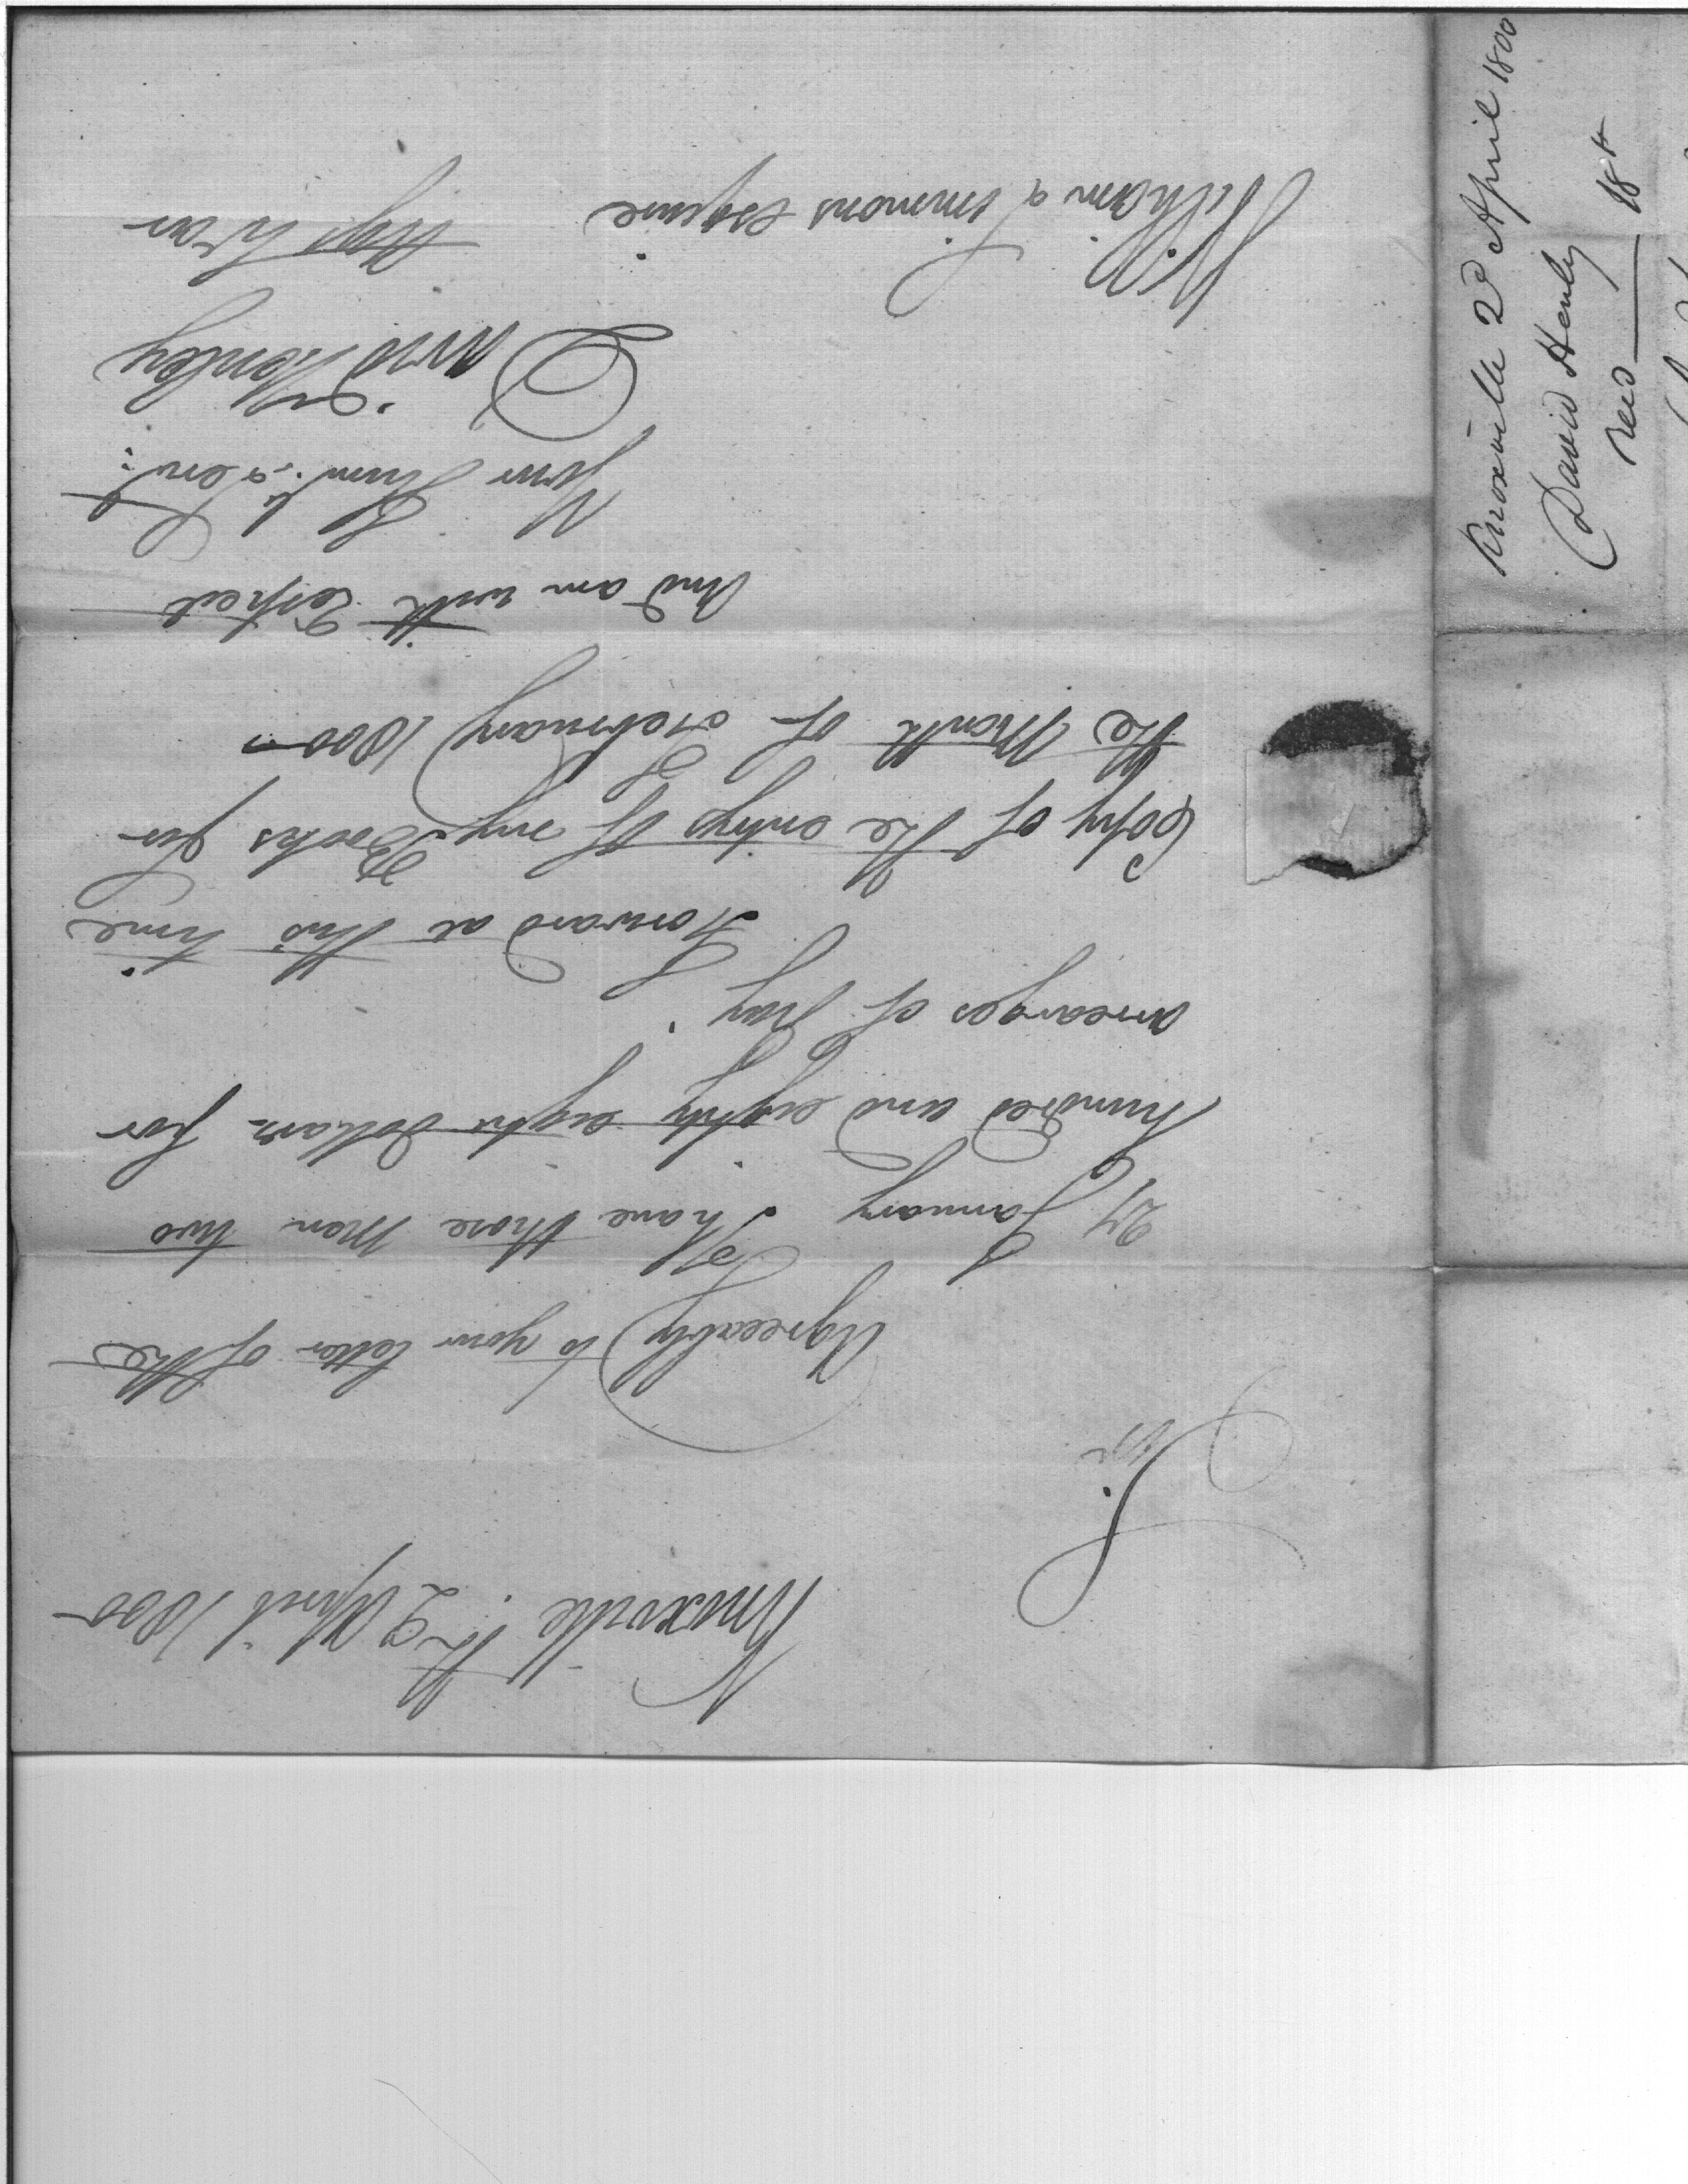 Knoxville the 2 April 1800
Sir
Agreeably to your letter of the
27 January I have those Men two
hundred and eighty eight dollars for
arrearges of pay.
I Forward at this time
Copy of the entrys of my Books for
the Month of February 1800
And am with Respect
Your Hum. Servt.
David Henley
Agt War
William Simmons Esquire
Knoxville 2d April 1800
David Henley
Recd 18th